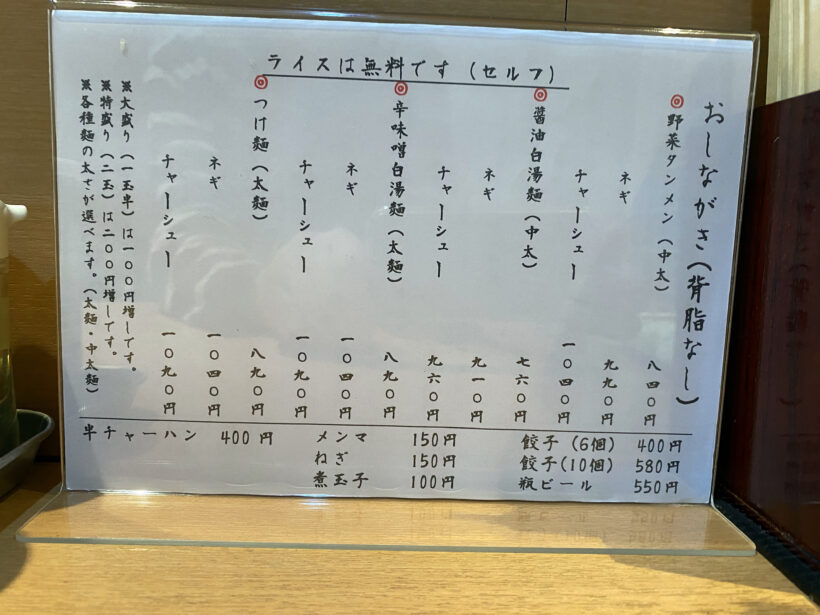 ライスは無料です(セルフ)
おしながき(背脂なし)
◎野菜タンメン(中太) 八四〇円
ネギ 九九〇円
チャーシュー 一〇四〇円
◎醤油白湯麺(中太) 七六〇円
ネギ 九一〇円
チャーシュー 九六〇円
◎辛味噌白湯麺(太麺) 八九〇円
ネギ 一〇四〇円
チャーシュー 一〇九〇円
◎つけ麺(太麺) 八九〇円
ネギ 一〇四〇円
チャーシュー 一〇九〇円
※大盛り(一玉半)は一〇〇円増しです。
※特盛り(二玉)は二〇〇円増しです。
※各種麺の太さが選べます。(太麺・中太麺)
半チャーハン 400円
メンマ 150円
ねぎ 150円
煮玉子 100円
餃子(6個) 400円
餃子(10個) 580円
瓶ビール 550円